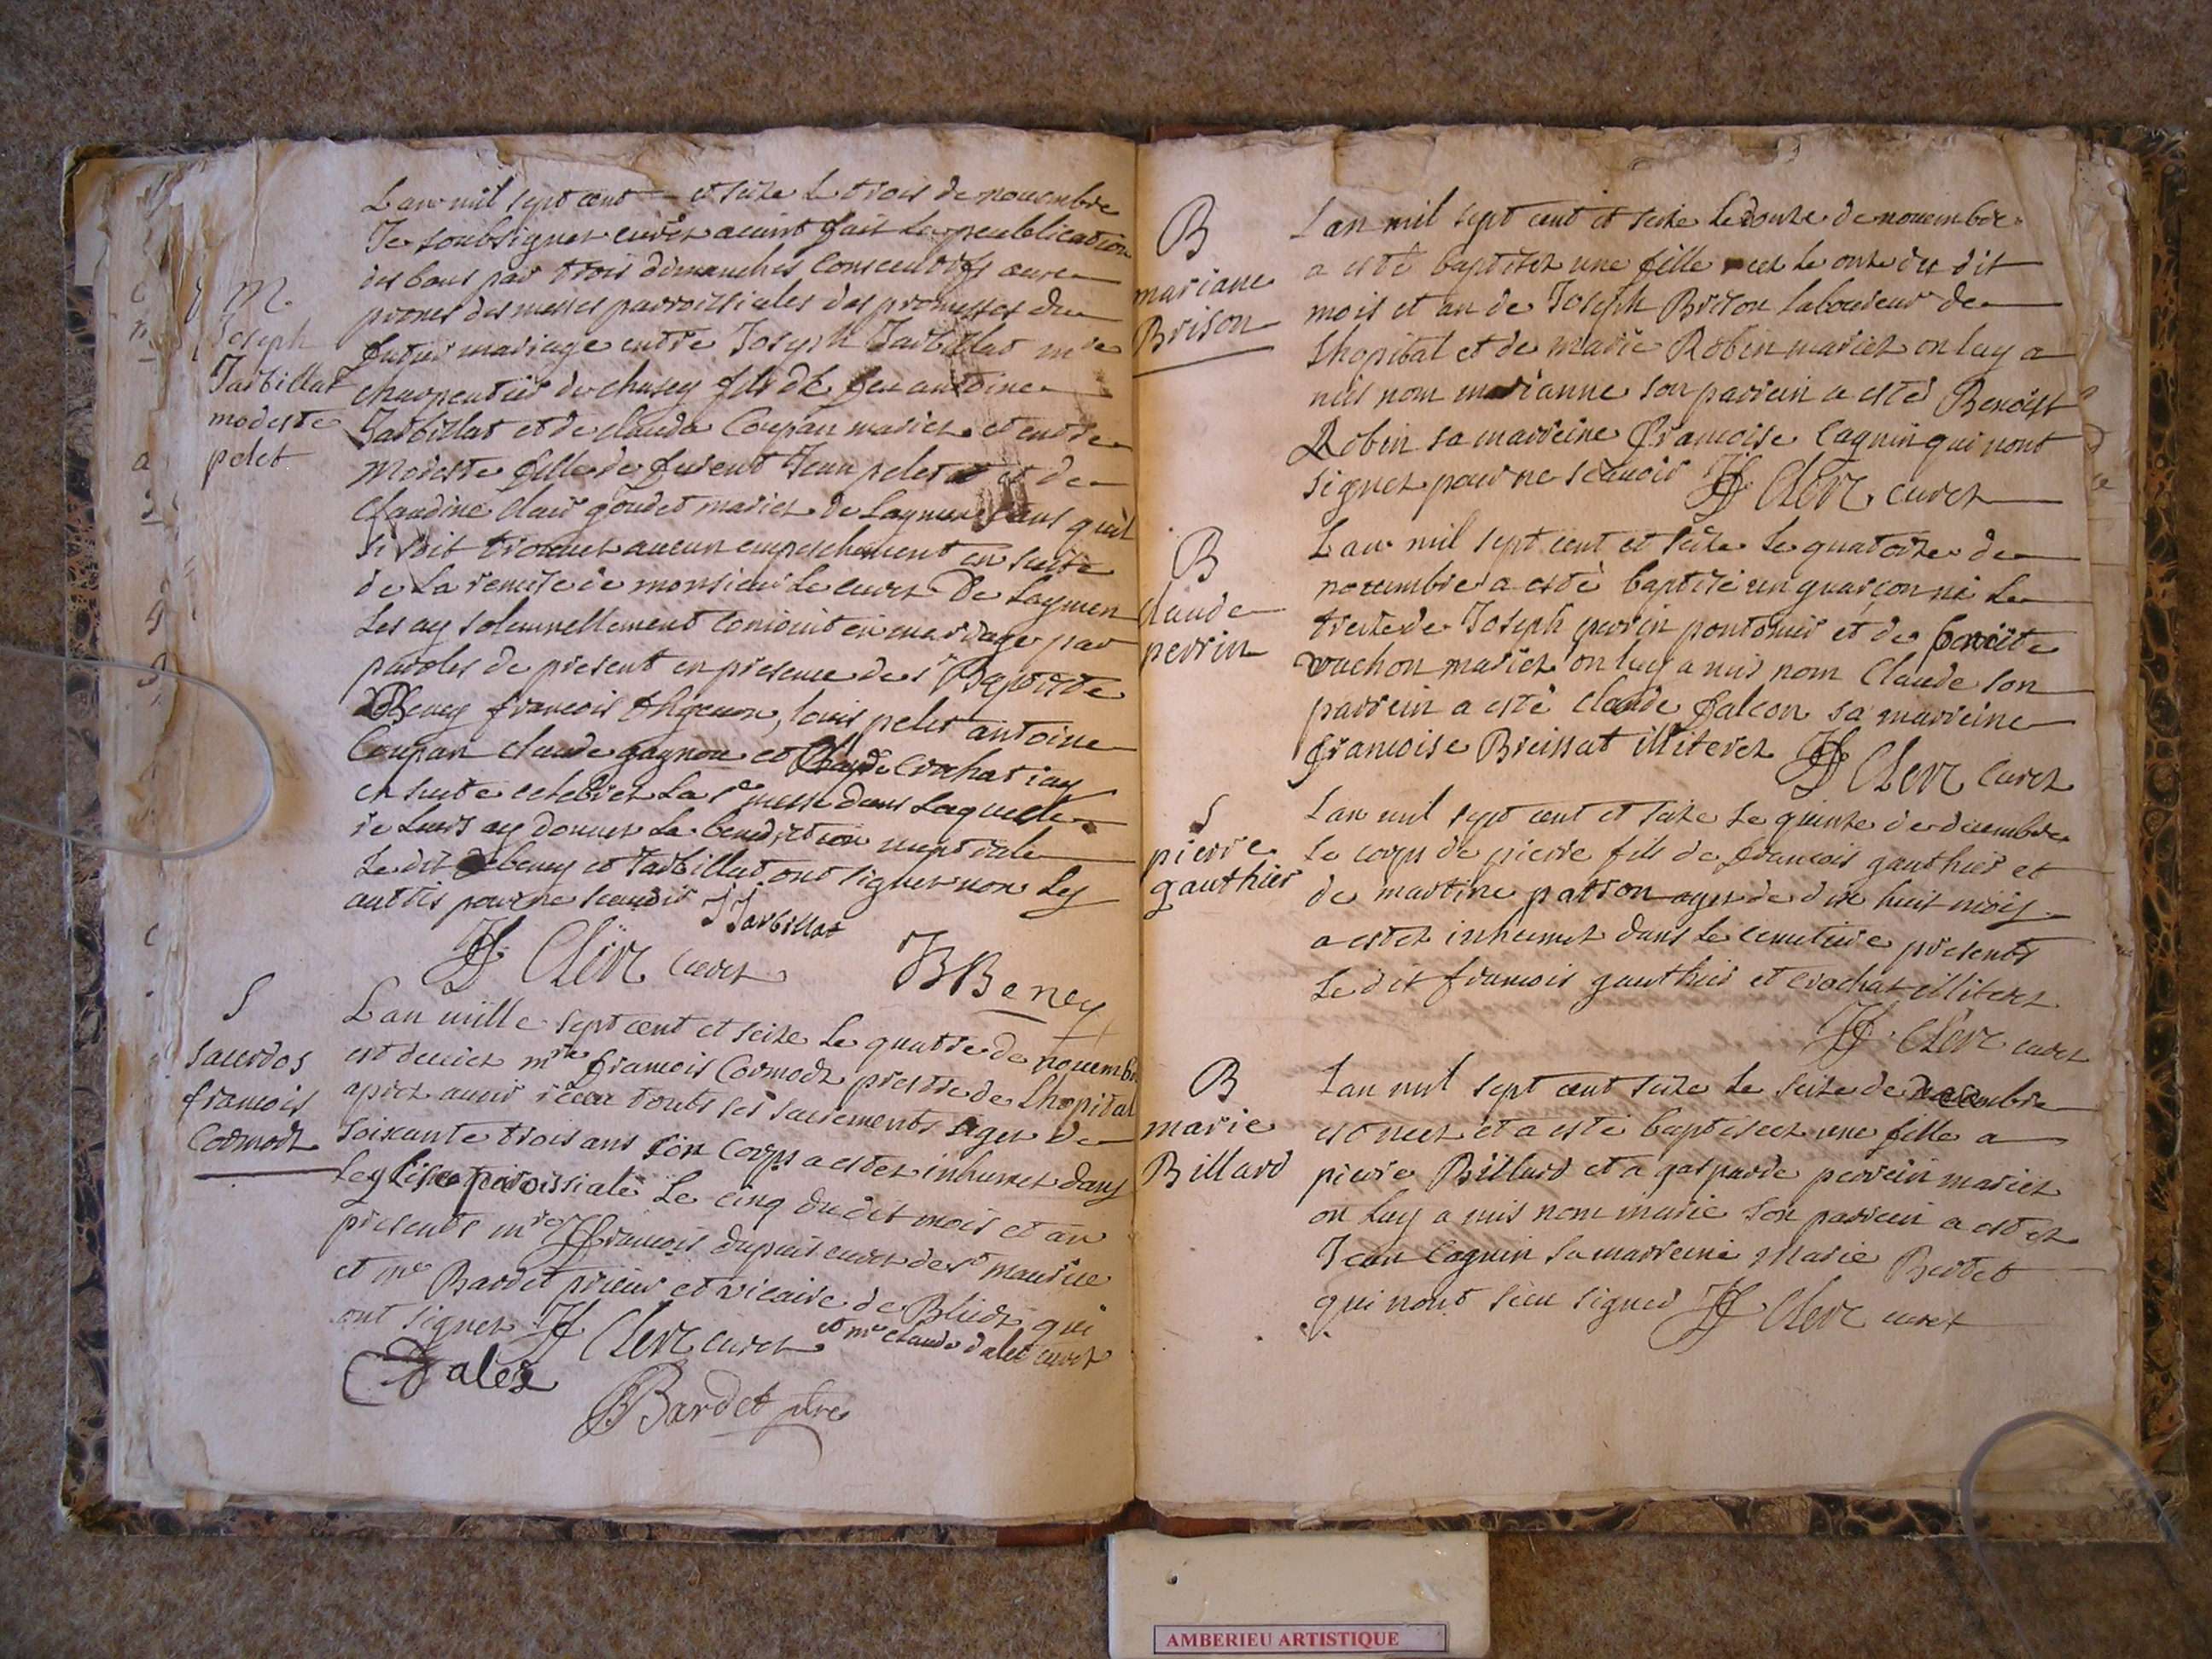 M
Joseph
Tarbillat
modeste
pelet
Lan mil sept cent et seize le trois de novembre
Je soubsignez curéz aiant fait la peublication
des bans par trois dimanches consecutifs aux
prones des messes parroissiales des promesses du
futur mariage entre Joseph Tarbillat me
charpentier de chasey fils de feu antoine
Tarbillat et de clauda Coupan mariez et entre
Modeste fille de furent Jean pelet et de
Claudine clair goudet mariez de Lagnieu sans quil
si soit trouvez aucun empeschement en suite
de la remise de monsieur le curez De Lagnieu
Les ay solemnellement conioint en mariage par
paroles de present en presence de sr Baptiste
DBeney francois, louis pelet antoine
Coupan claude gagnon et Claude Crochat iay
en suite celebrez la ste messe dans laquelle
ie leurs ay donnez la benediction nuptiale
Le dit debeney et Tarbillat ont signez non les
auttis pour ne scauoir J Tarbillat
JF Clerc curez
JBBeney
S
sacerdos
francois
Cormoz
Lan mille sept cent et seize le quatre de novembre
est decedez mre francois Cormoz prestre de Lhopital
aprez auoir receu touts ses sacrements agez de
soixante trois ans son corps a estez inhumez dans
leglise paroissiale le cinq du dit mois et an
presents mre francois dupuis curez de st maurice
et mre Bardet prieur et vicaire de Blies qui
ont signez JF Clerc curez et mre claude dalez curez
C Dalez
Bardet ptre
B
mariane
Brison
Lan mil sept cent et seize le douze de novembre
a esté baptisez une fille neez le onze du dit
mois et an de Joseph Brison laboureur de
Lhopital et de marie Robin mariez on luy a
mis nom marianne son parrein a esté Benoist
Robin sa marreine francoise cagnin qui nont
signez pour ne scauoir JF Clerc curez
B
claude
perrin
Lan mil sept cent et seize le quatorze de
novembre a esté baptisé un guarçon né le
treize de Joseph perrin pontonier et de benoite
vachon mariez on luy a mis nom Claude son
parrein a esté claude falcon sa marreine
francoise Breissat illiterez JF Clerc curez
S
pierre
gauthier
Lan mil sept cent et seize le quinze de decembre
le corps de pierre fils de francois gauthier et
de martine patron agez de dix huit mois
a estez inhumez dans le cemetiere presents
Le dit francois gauthier et crochat illiterez
JF Clerc curez
B
marie
Billard
Lan mil sept cent seize le seize de decembre
est neez et a esté baptiseez une fille a
pierre Billard et a gasparde perrein mariez
on luy a mis nom marie son parrein a estez
Jean Cagnin sa marreine Marie Bertet
qui nont sceu signer JF Clerc curez
AMBERIEU ARTISTIQUE